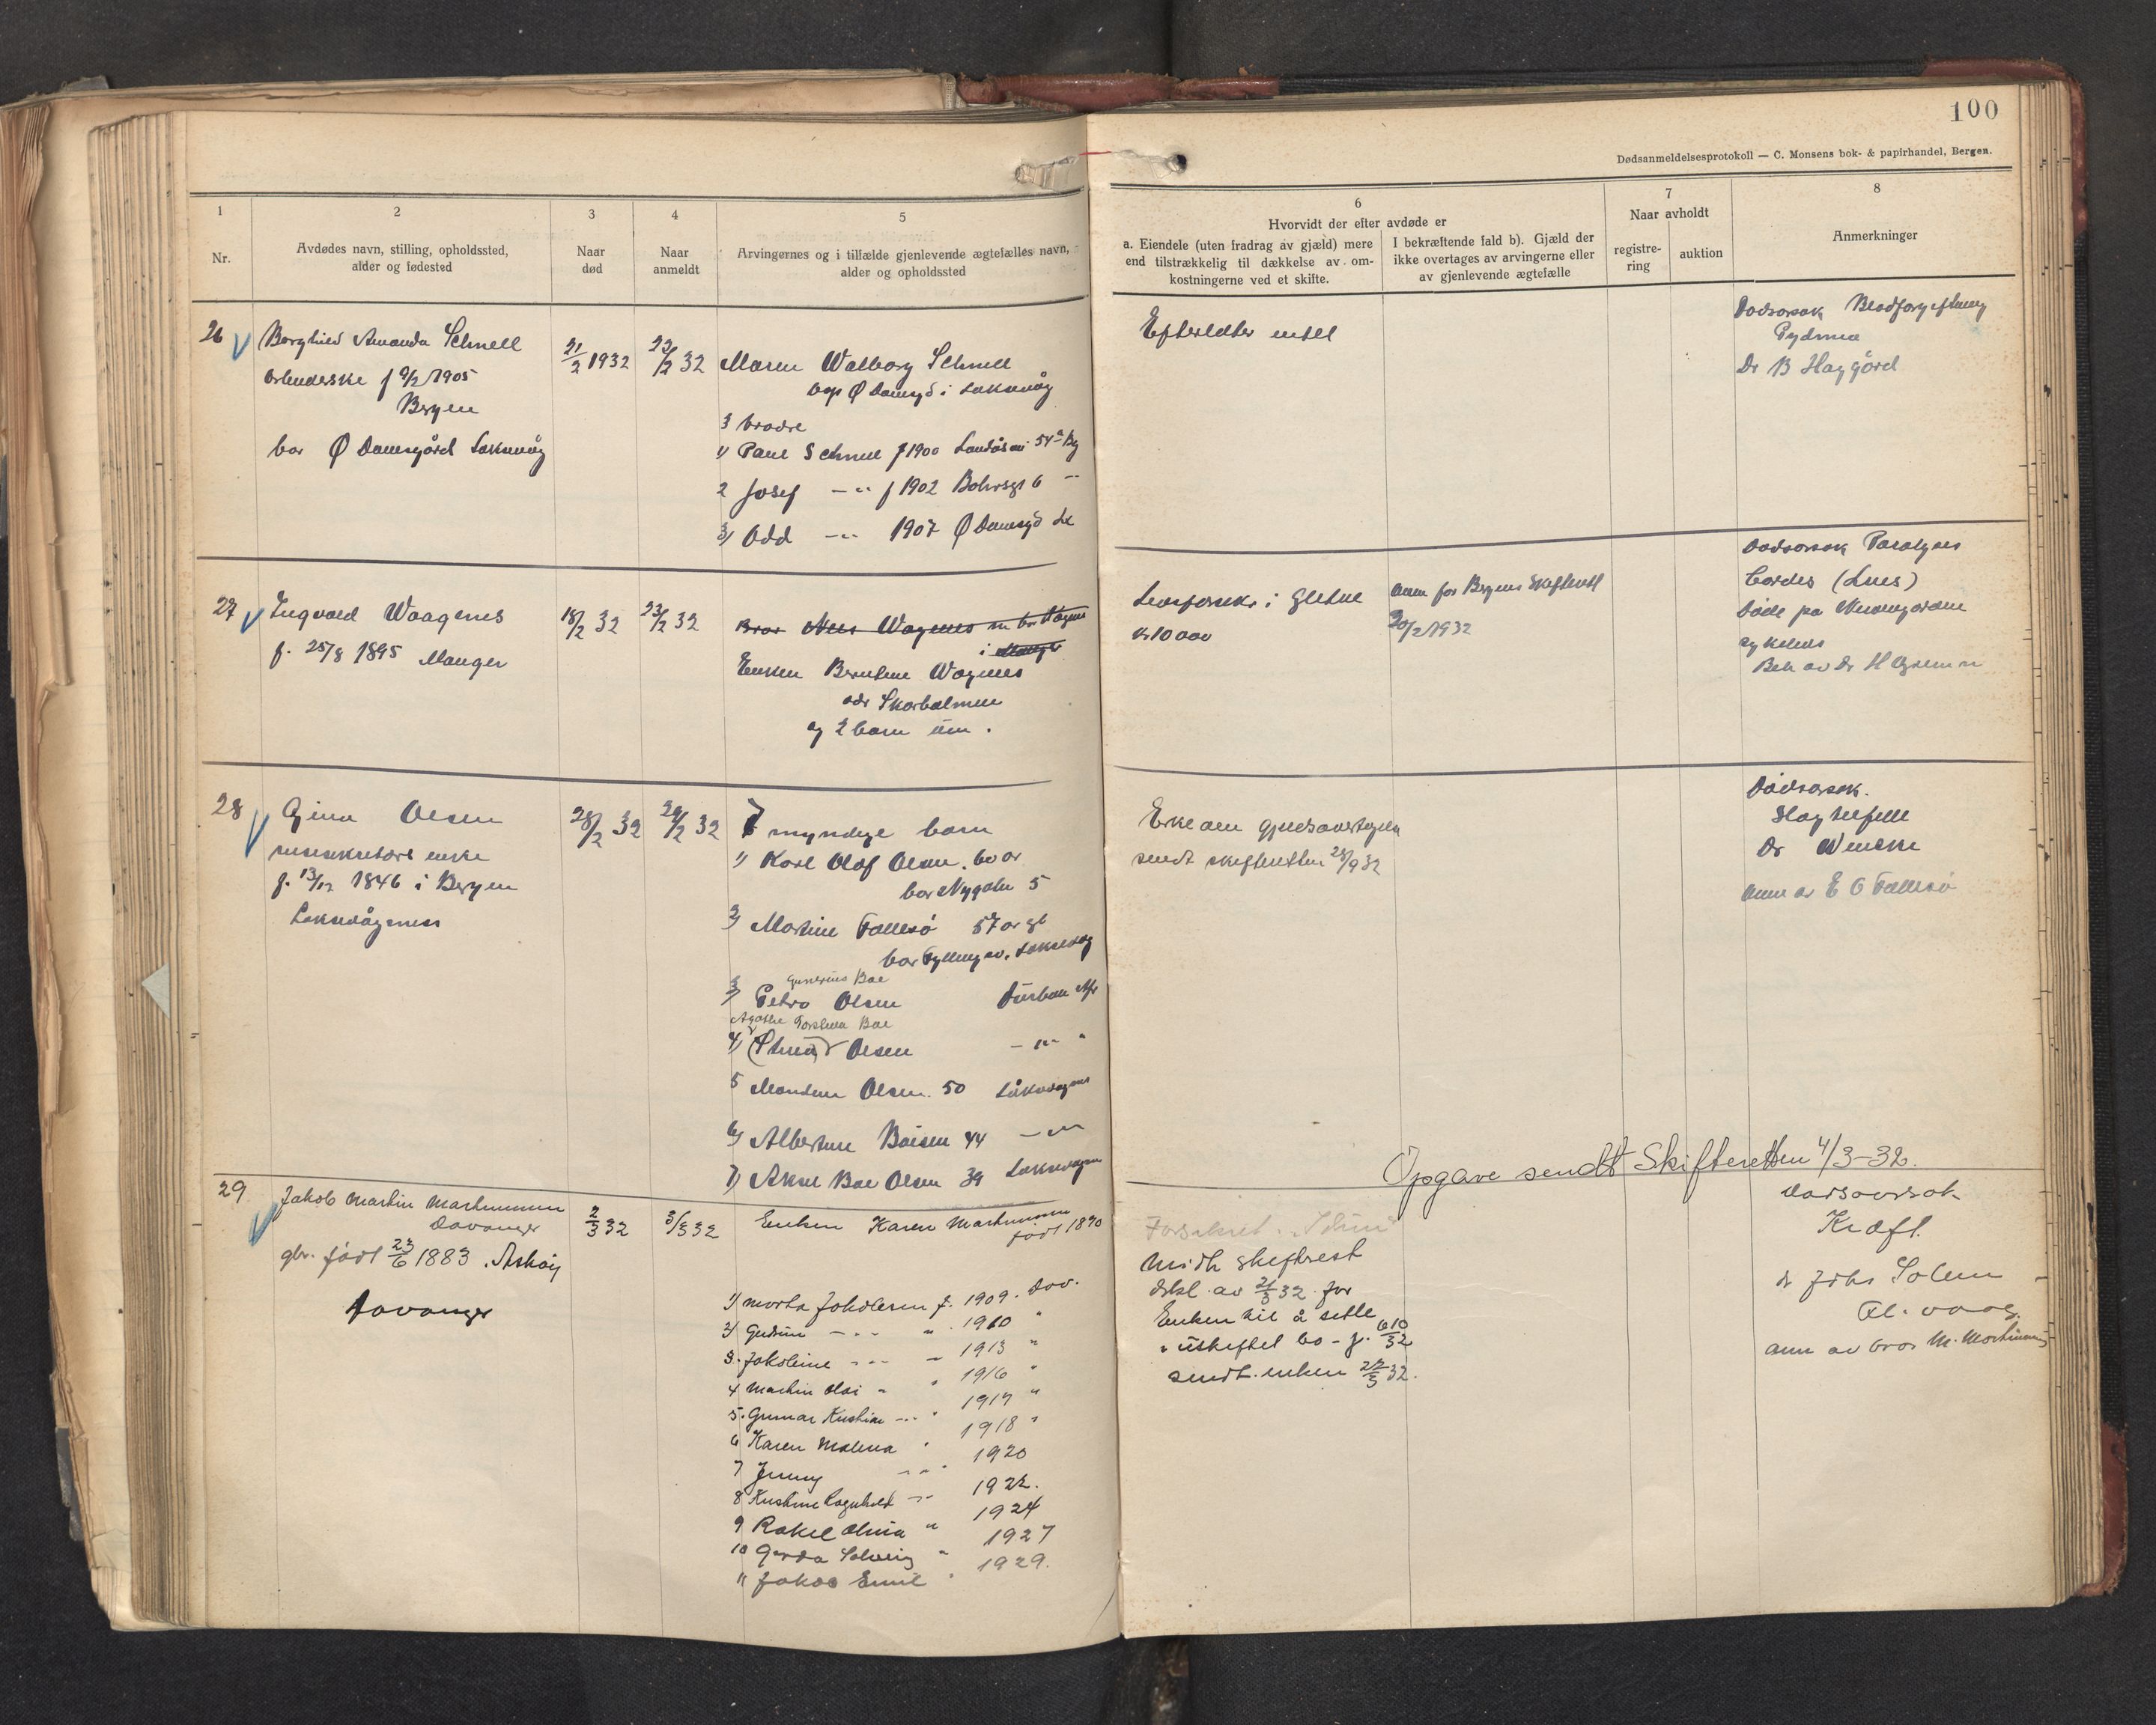 100
Dødsanmeldelsesprotokoll — C. Monsens bok- & papirhandel, Bergen.
1
Nr.
2
Avdødes navn, stilling, opholdssted,
alder og fødested
3
Naar
død
4
Naar
anmeldt
5
Arvingernes og i tilfælde gjenlevende ægtefælles navn,
alder og opholdssted
6
Hvorvidt der efter avdøde er
a. Eiendele (uten fradrag av gjæld) mere
end tilstrækkelig til dækkelse av om-
kostningerne ved et skifte.
I bekræftende fald b). Gjæld der
ikke overtages av arvingerne eller
av gjenlevende ægtefælle
7
Naar avholdt
registre-
ring
auktion
8
Anmerkninger
26
Borghild Amanda Schnell
f 9/2 1905
Bergen
bor Ø Damsgård Laksevåg
21/2 1932
22/2 32
Maren Walborg Schnell
Ø Damsgd i Laksevåg
3 brødre
1) Paul Schnell f 1900 Landåsvei 54a Bg
2 Josef -"- f 1902 Bohrsgt 6 -"-
3) Odd -"- 1907 Ø Damsgd Lx
Efterlater intet
Dødsorsak Blodforgiftning
Dr B Haggård
27
Ingvald Waagenes
f. 25/8 1895 Manger
18/2 32
23/2 32
Bror Nils Wagenes
i Manger
Enken Berntine Wagenes
adr Skarholmen
og 2 barn um.
Livsforsekr i
kr 10 000
Anm for Bergens Skifterett
20/2 1932
Dødsorsak Paralyses
Cordis (Lues)
Døde på Neevengården
sykehus
Beh av Dr H
28
Gina Olsen
enke
f. 13/12 1846 i Bergen
Laksevågsnes
28/2 32
29/2 32
7 myndige barn
1) Karl Olaf Olsen. 60 år
bor Nygåtn 5
2) Martine Tollesø 57 år gl
bor Fyllingsv. Laksevåg
Gunerius Boe
3) Petro Olsen Durban Afr
Agathe Torstena Boe
4) Olsen -"- "
5 Olsen. 50 Laksevågsnes
6) Albertine Boisen 44 -"-
7) Aksel Boe Olsen 39 Laksevågen
Erklæn gjeldsovertagelse
sendt skifteretten
Dødsorsak.
Slagtilfelle
Dr Wencke
Anm av E O Tollesø
Opgave sendt Skifteretten 4/3-32.
29
Jakob Martin Martinussen
Davanger
gbr. født 23/6 1883. Askøy
Davanger
2/3 32
3/3 32
Enken Karen Martinussen
født 1890
1) Marta Jakobsen f. 1909. Dav.
2) Gudrun -"- " 1910 "
3. Jakobine -"- - 1913 "
4 Martin Olai " " 1916 "
5. Gunnar Kristian -"- " 1917 "
6 Karen Malena " 1918 "
7 Jenny -"- 1920
8 Kristine Ragnhild -"- 1922.
9 Rakel Olivia " 1924
10 Gerda Solveig " 1927
11 Jakob Emil " 1929.
Forsikret i "Idun"
Midh. skifterest
av 21/3 32 for
Enken til å sitte
i uskiftet bo - j. 610/32
sendt enken 22/3 32.
Dødsorsak
Kræft.
dr Johs Solem
Kl. våg.
anm av bror M. Martinussen